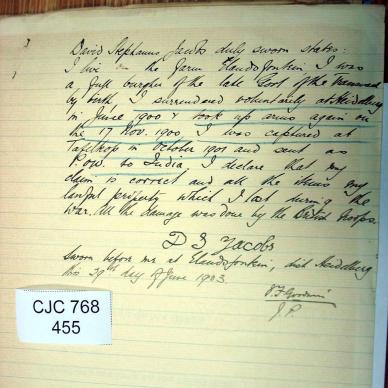 David Stephanus Jacobs duly sworn states:
I live on the farm Elandsfontein I was
a full burgher of the late Govt of the Transvaal
by birth I surrendered voluntarily at Heidelberg
in June 1900 & took up arms again on
the 17 Nov. 1900, I was captured at
Tafelkop in October 1901 and sent as
P.o.w. to India I declare that my
claim is correct and all the items my
lawful property which I lost during the
war. All the damage was done by the British troops.
D S Jacobs
Sworn before me at Elandsfontein, dist Heidelberg
this day of June 1903.
J.P.
CJC 768
455